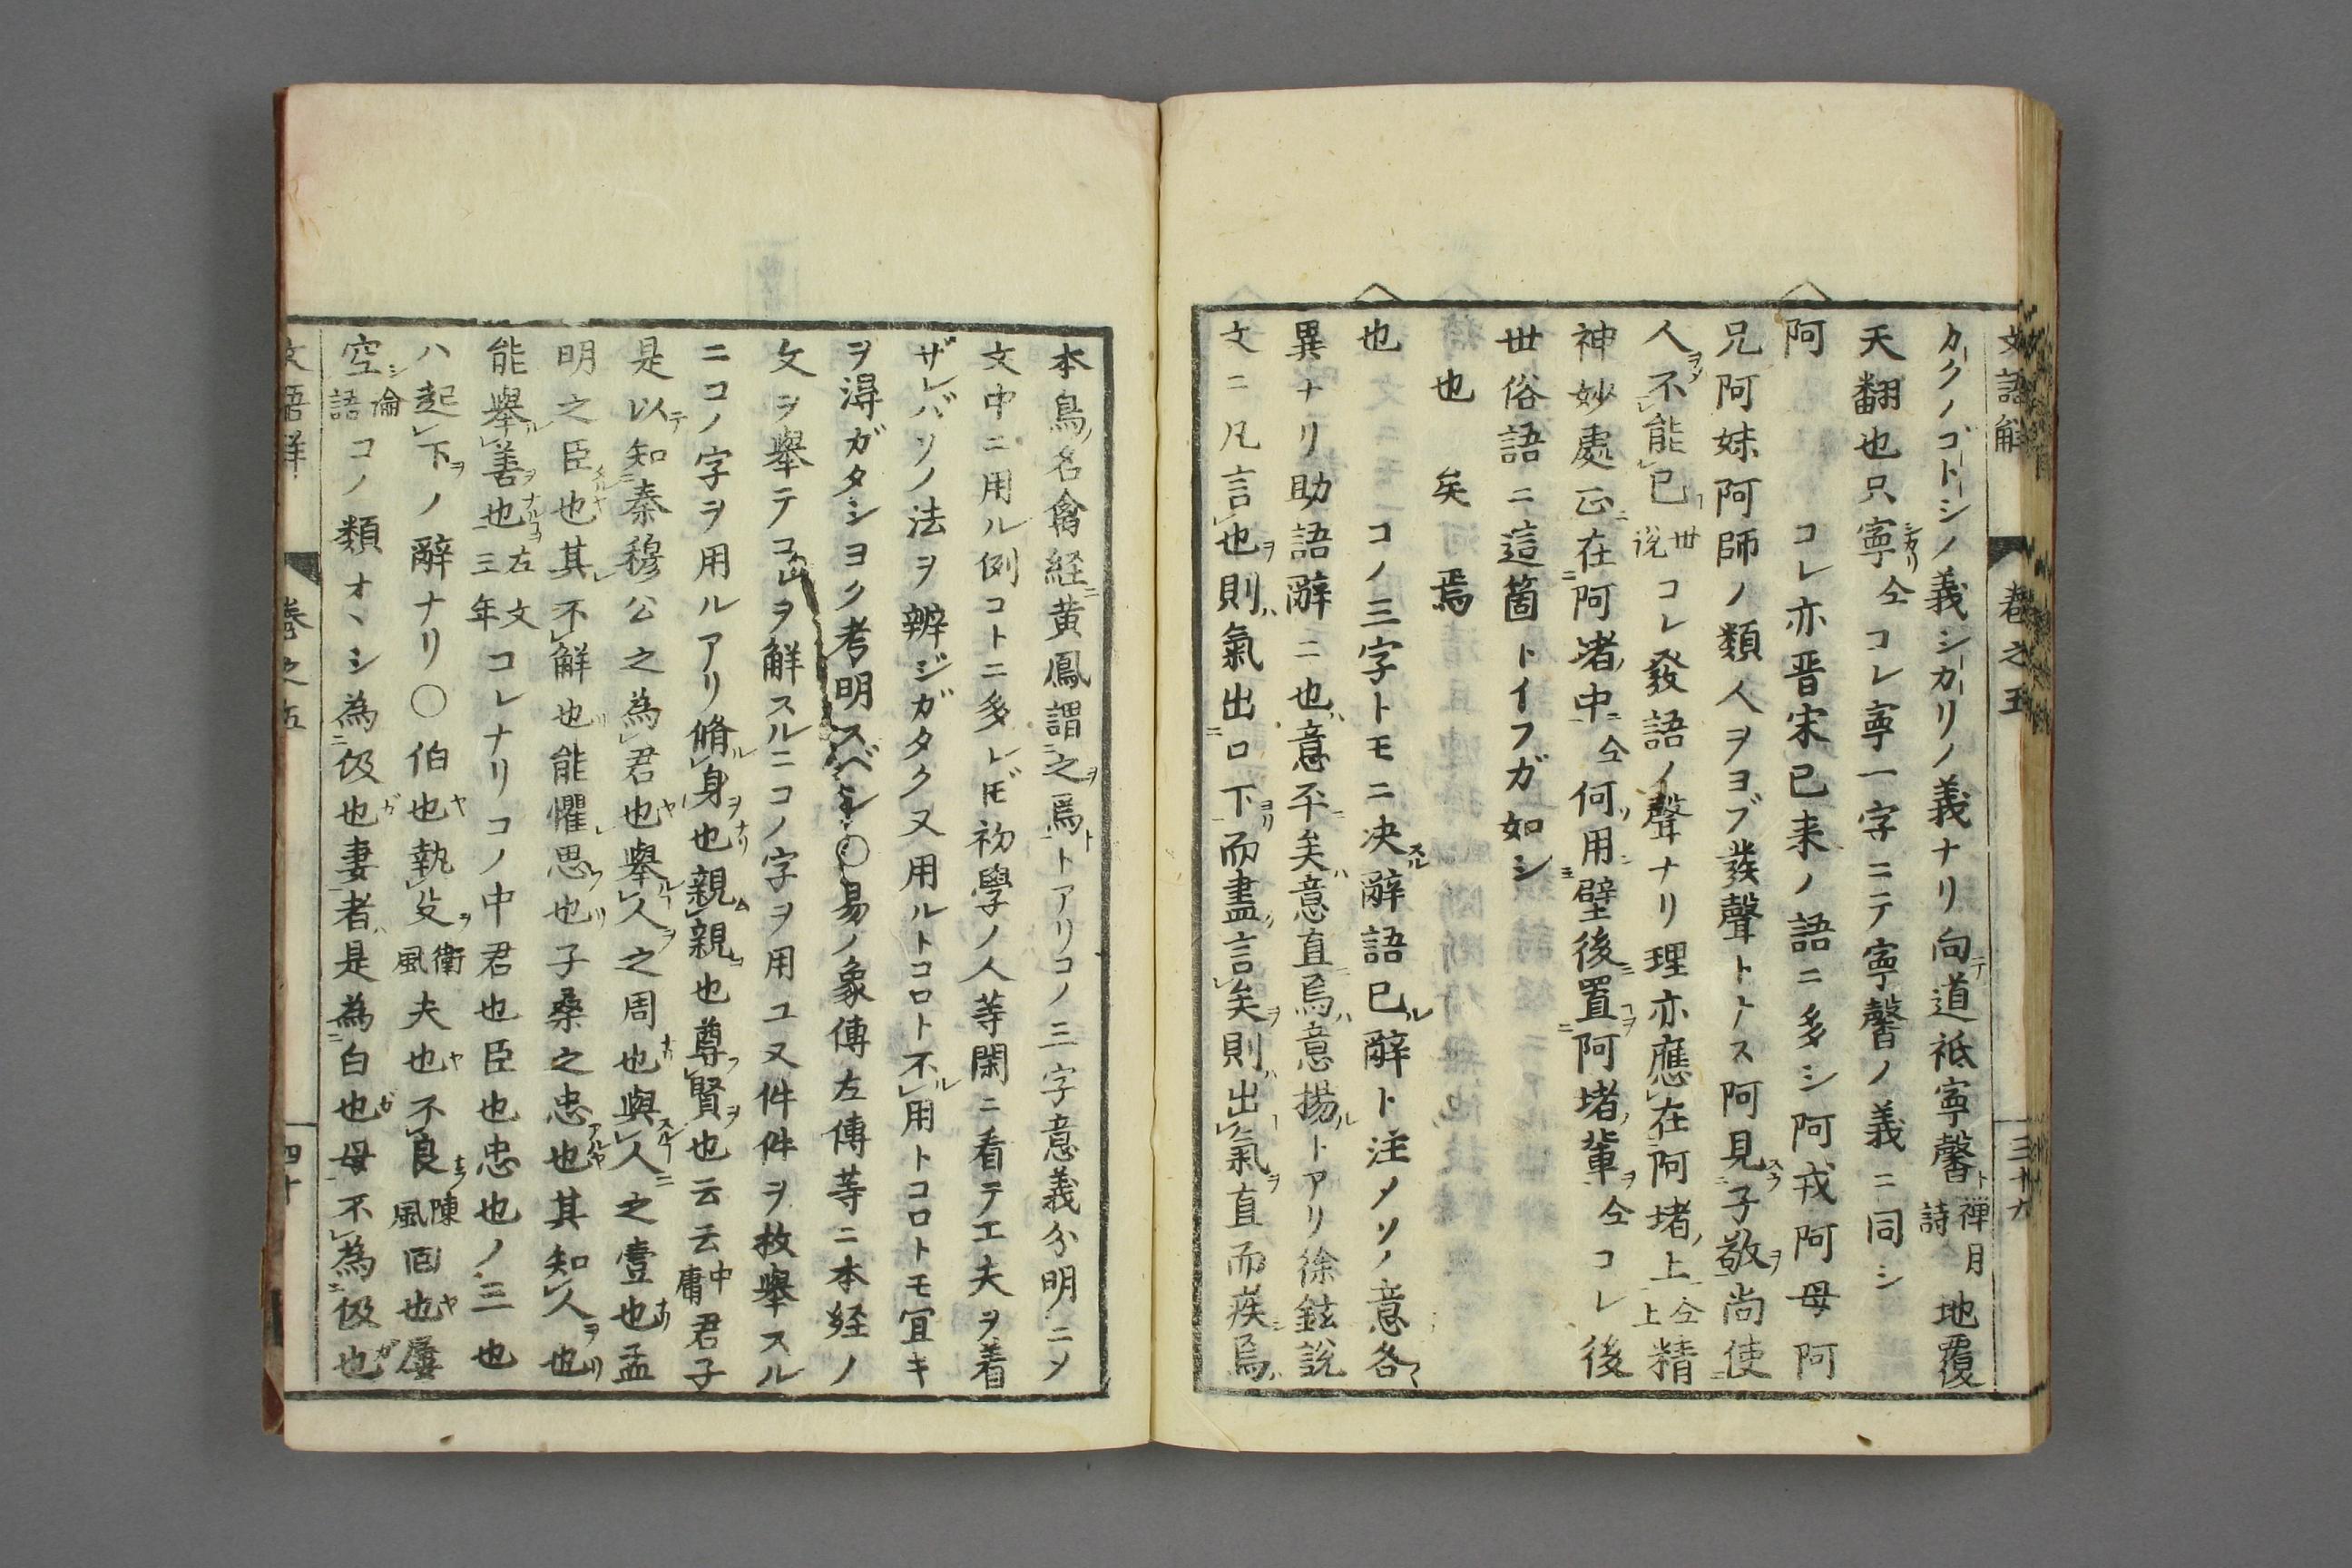 文語解 卷之五 三十九
カクノゴトシノ義シカリノ義ナリ向道祗寧馨禪月詩地覆
天翻也只寧仝コレ寧一字ニテ寧馨ノ義ニ同シ
阿 コレ亦晋宋已来ノ語ニ多シ阿戎阿母阿
兄阿妹阿師ノ類人ヲヨブ發聲トス阿見子敬尚使
人不能已世説コレ發語ノ聲ナリ理亦應在阿堵上仝上精
神妙處正在阿堵中仝何用壁後置阿堵輩仝コレ後
世俗語ニ這箇トイフガ如シ
也 矣 焉
也 コノ三字トモニ决辭語已辭ト注メソノ意各
異ナリ助語辭ニ也意平矣意直焉意揚トアリ徐鉉説
文ニ凡言也則氣出口下而盡言矣則出氣直而疾焉
本鳥名禽経黄鳳謂之焉トアリコノ三字意義分明ニメ
文中ニ用ル例コトニ多レドモ初學ノ人等閑ニ看テ工夫ヲ着
ザレバソノ法ヲ辨ジガタク又用ルトコロト不用トコロトモ宜キ
ヲ得ガタシヨク考明スベシ○易ノ象傳左傳等ニ本経ノ
文ヲ舉テコレヲ解スルニコノ字ヲ用ユ又件件ヲ枚舉スル
ニコノ字ヲ用ルアリ脩身也親親也尊賢也云云中庸君子
是以知秦穆公之為君也舉人之周也與人之壹也孟
明之臣也其不解也能懼思也子桑之忠也其知人也
能舉善也左文三年コレナリコノ中君也臣也忠也ノ三也
ハ起下ノ辭ナリ○伯也執殳衛風夫也不良陳風回也屢
空論語コノ類オヽシ為伋也妻者是為白也母不為伋也
文語解 卷之五 四十